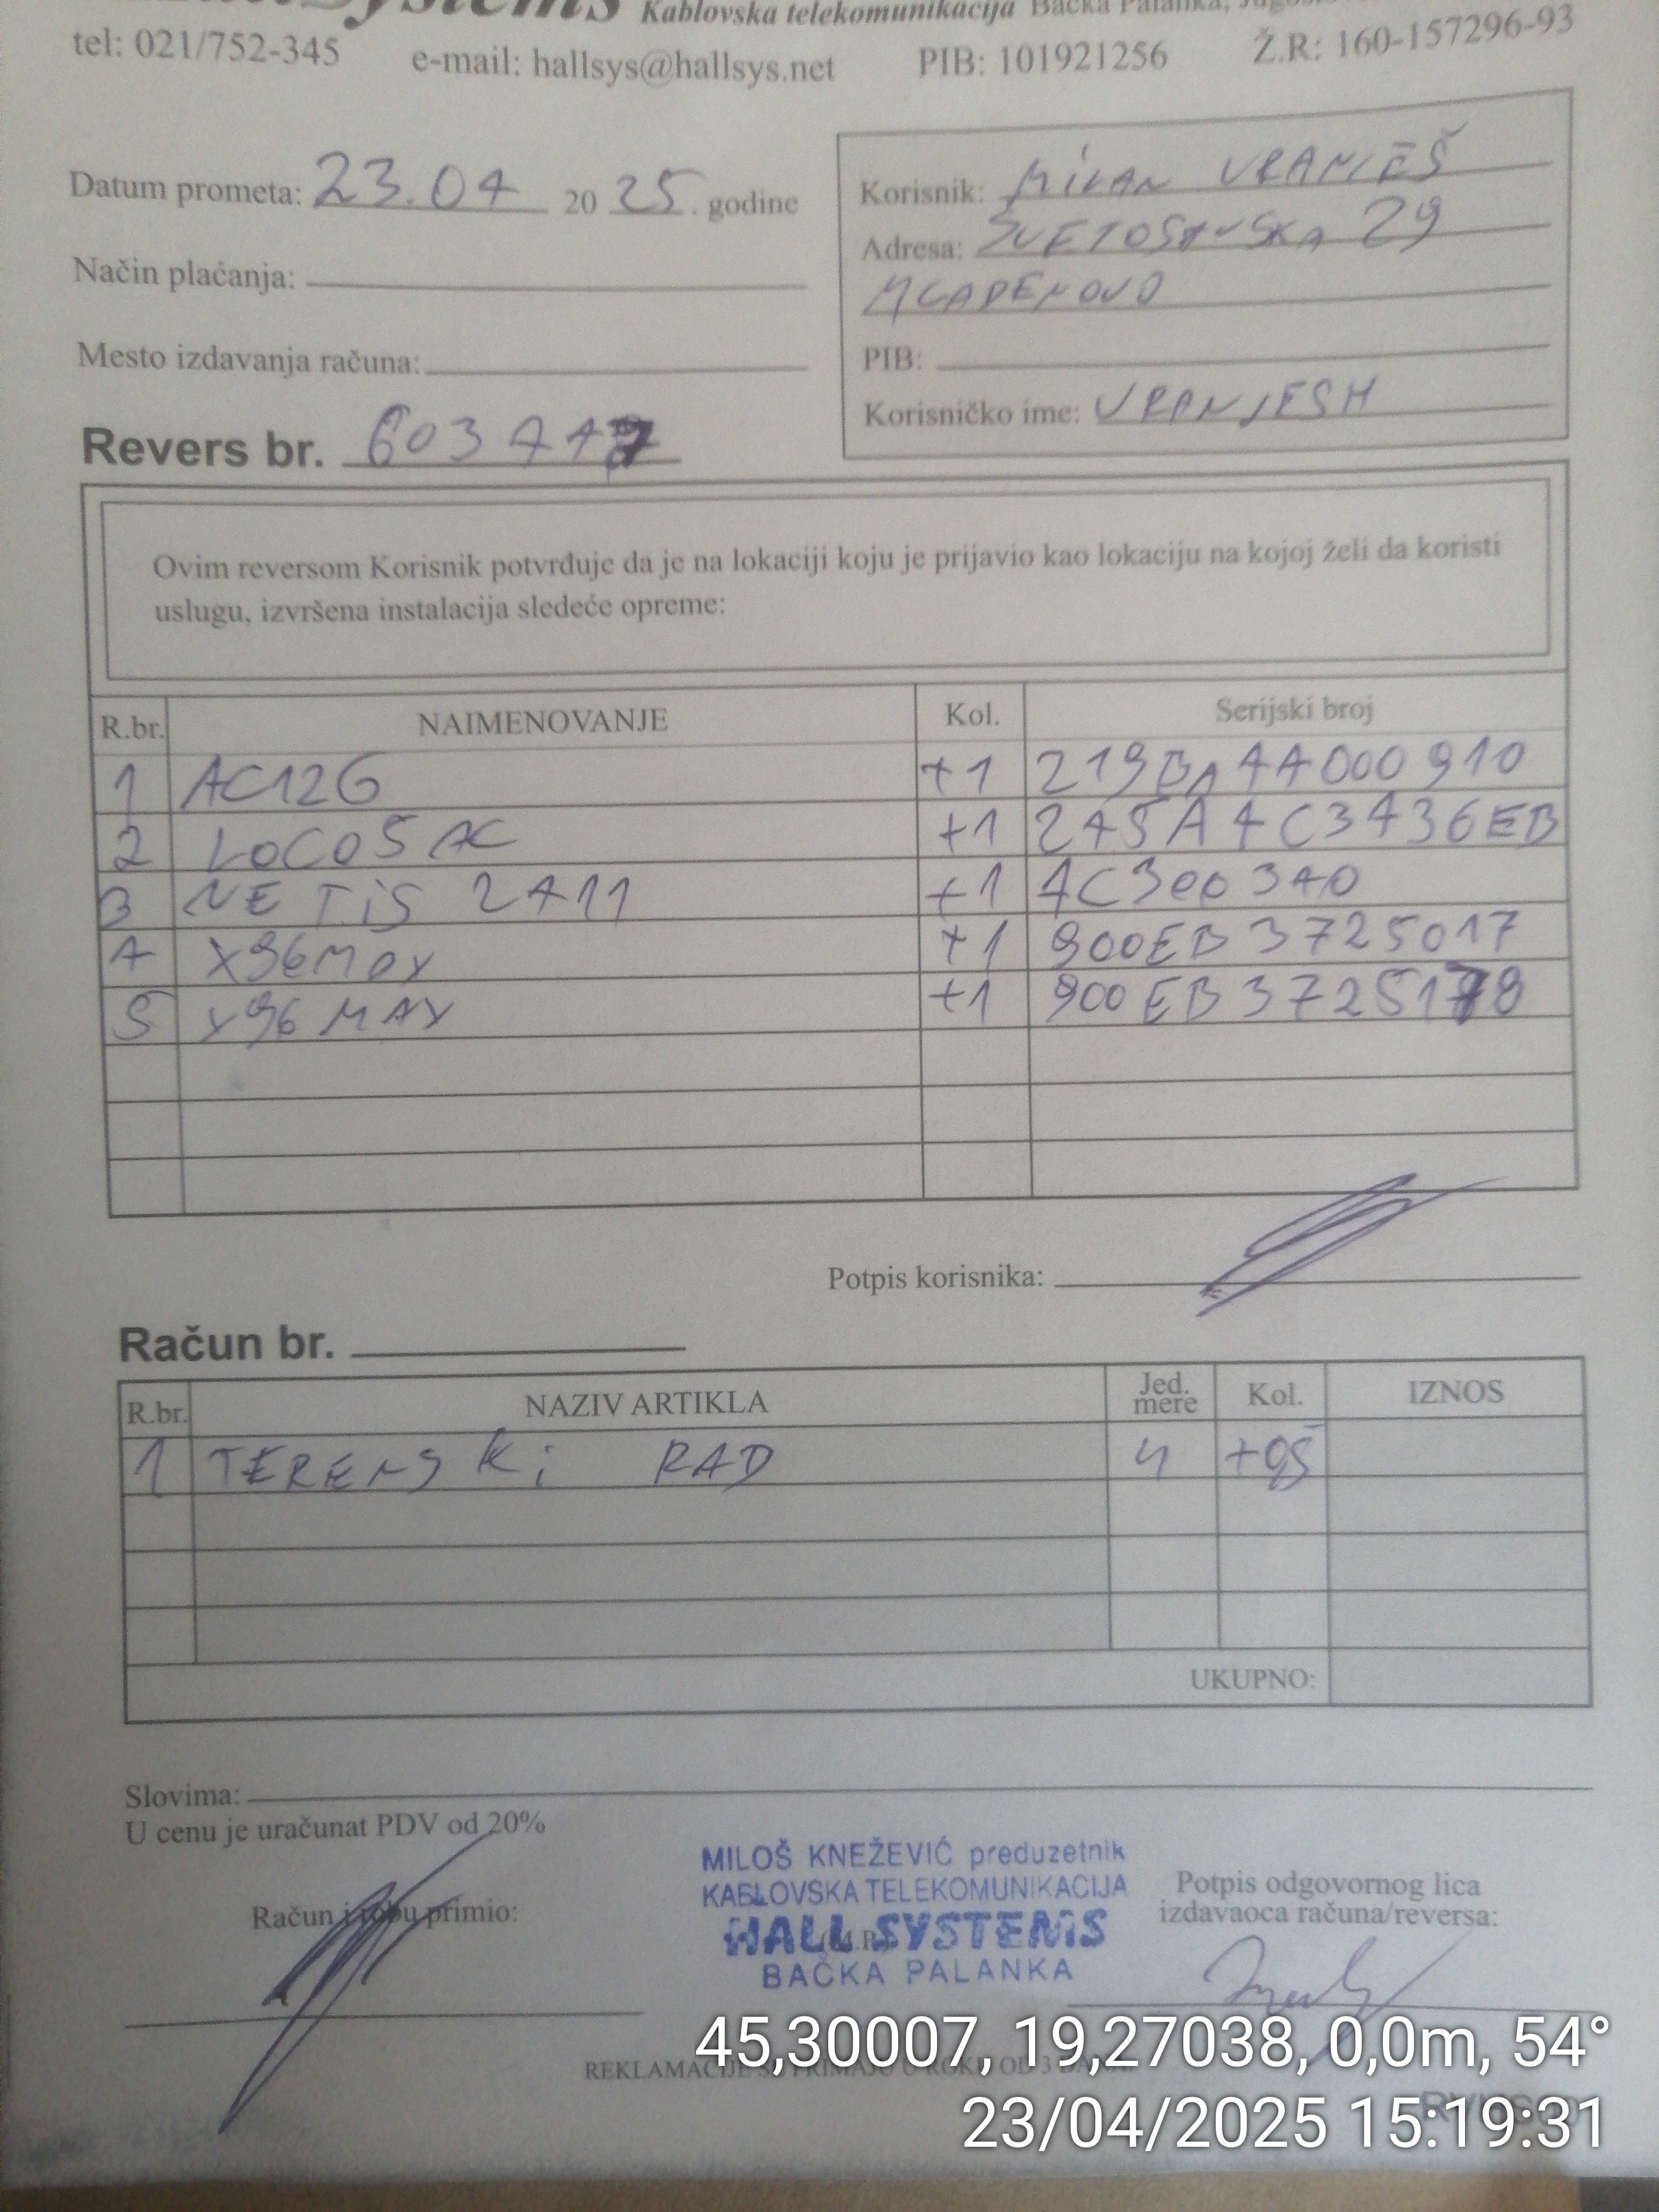 Systems Kablovska telekomunikacija Bačka Palanka,
tel: 021/752-345 e-mail: hallsys@hallsys.net PIB: 101921256 Ž.R: 160-157296-93
Datum prometa: 23.04 2025. godine
Način plaćanja:
Mesto izdavanja računa:
Korisnik: MILAN VRANJEŠ
Adresa: SVETOSAVSKA 29
MLADENOVO
PIB:
Korisničko ime: VRANJESH
Revers br. 603447
Ovim reversom Korisnik potvrđuje da je na lokaciji koju je prijavio kao lokaciju na kojoj želi da koristi
uslugu, izvršena instalacija sledeće opreme:
R.br. NAIMENOVANJE Kol. Serijski broj
1 AC12G +1 219BA44000910
2 LOCO5AC +1 245A4C3436EB
3 NETIS 2411 +1
4 X96MAX +1 900EB3725017
5 X96MAX +1
Potpis korisnika:
Račun br.
R.br. NAZIV ARTIKLA Jed. mere Kol. IZNOS
1 TERENSKI RAD
UKUPNO:
Slovima:
U cenu je uračunat PDV od 20%
Račun i robu primio:
MILOŠ KNEŽEVIĆ preduzetnik
KABLOVSKA TELEKOMUNIKACIJA
HALL SYSTEMS
BAČKA PALANKA
(M.P.)
Potpis odgovornog lica
izdavaoca računa/reversa:
REKLAMACIJE SE PRIMAJU U ROKU OD 3 DANA
45,30007, 19,27038, 0,0m, 54°
23/04/2025 15:19:31